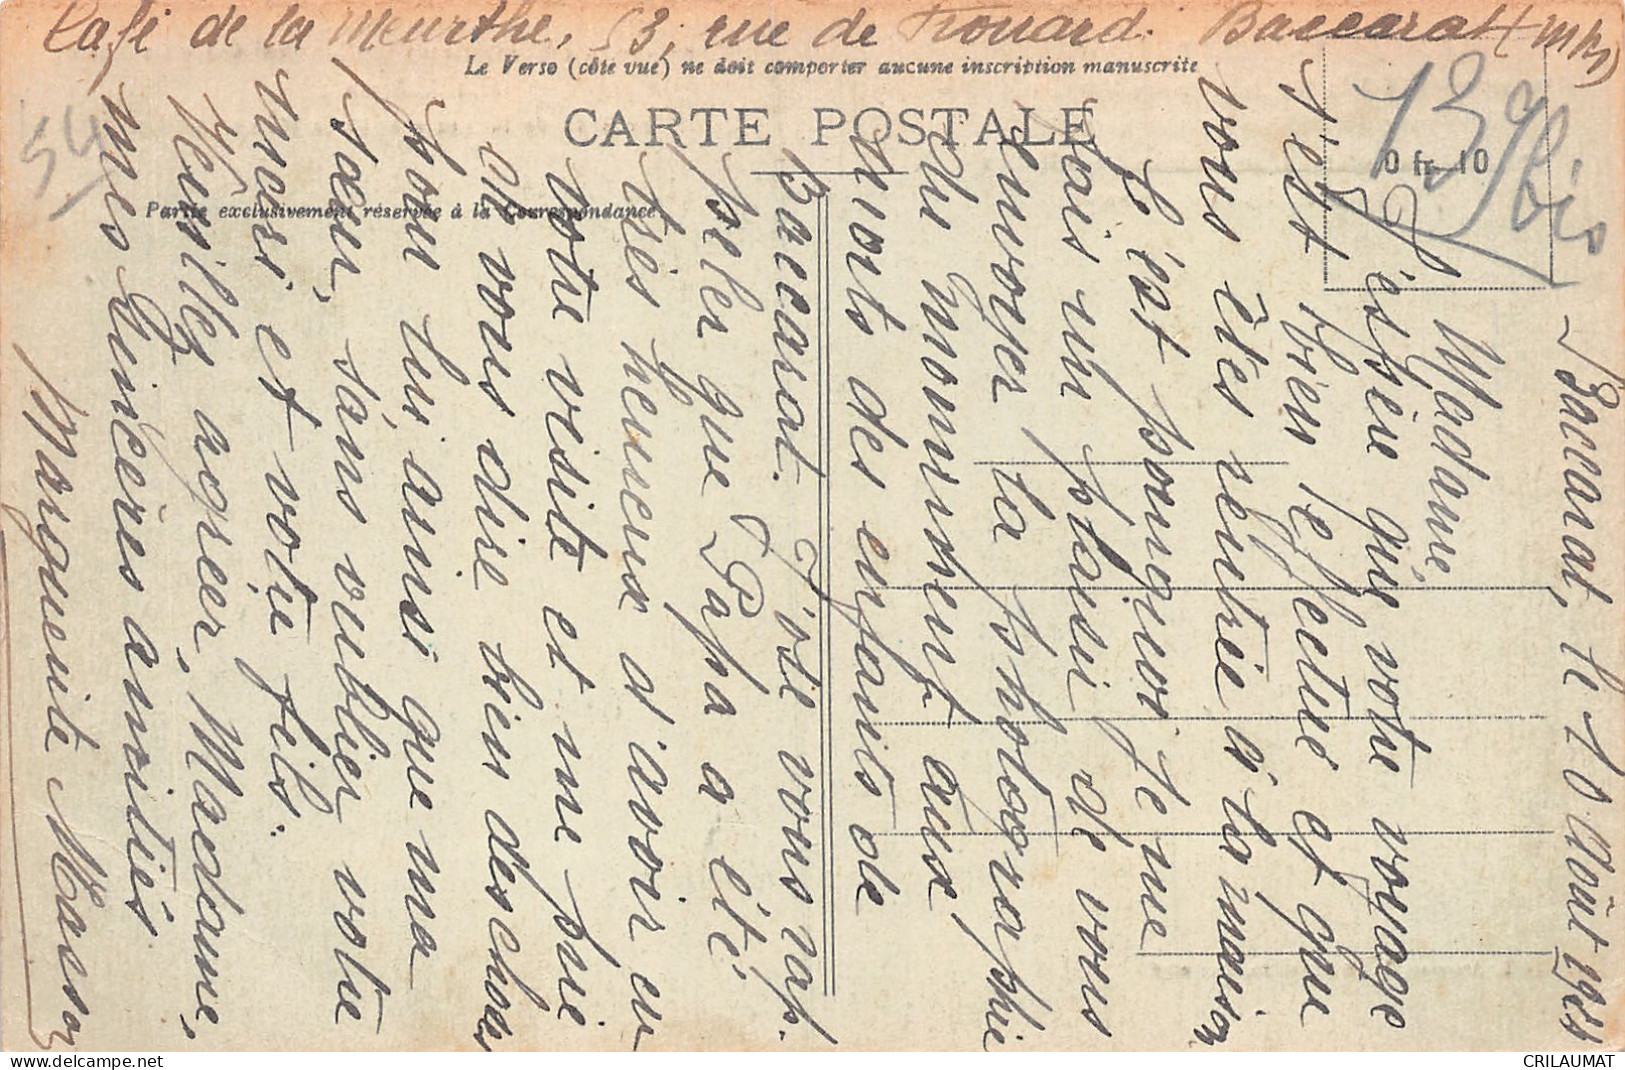 Café de la Meurthe, 53, rue de Frouard. Baccarat (M M)
Le Verso (côté vue) ne doit comporter aucune inscription manuscrite
CARTE POSTALE
Partie exclusivement réservée à la Correspondance
0 fr. 10
139 bis
54
Baccarat, le 10 Août 1921
Madame,
J'éspère que votre voyage
s'est bien éffectué et que
vous êtes réntrée à la maison
C'est pourquoi je me
fais un plaisir de vous
envoyer la photographie
du monument aux
morts des enfants de
Baccarat. J'ose vous rap-
peler que Papa a été
très heureux d'avoir eu
votre visite et me prie
de vous dire bien des choses
pour lui ainsi que ma
sœur, sans oublier votre
merci et votre fils.
Veuillez agréer, Madame,
mes sincères amitiés
Marguerite Masson
CRILAUMAT